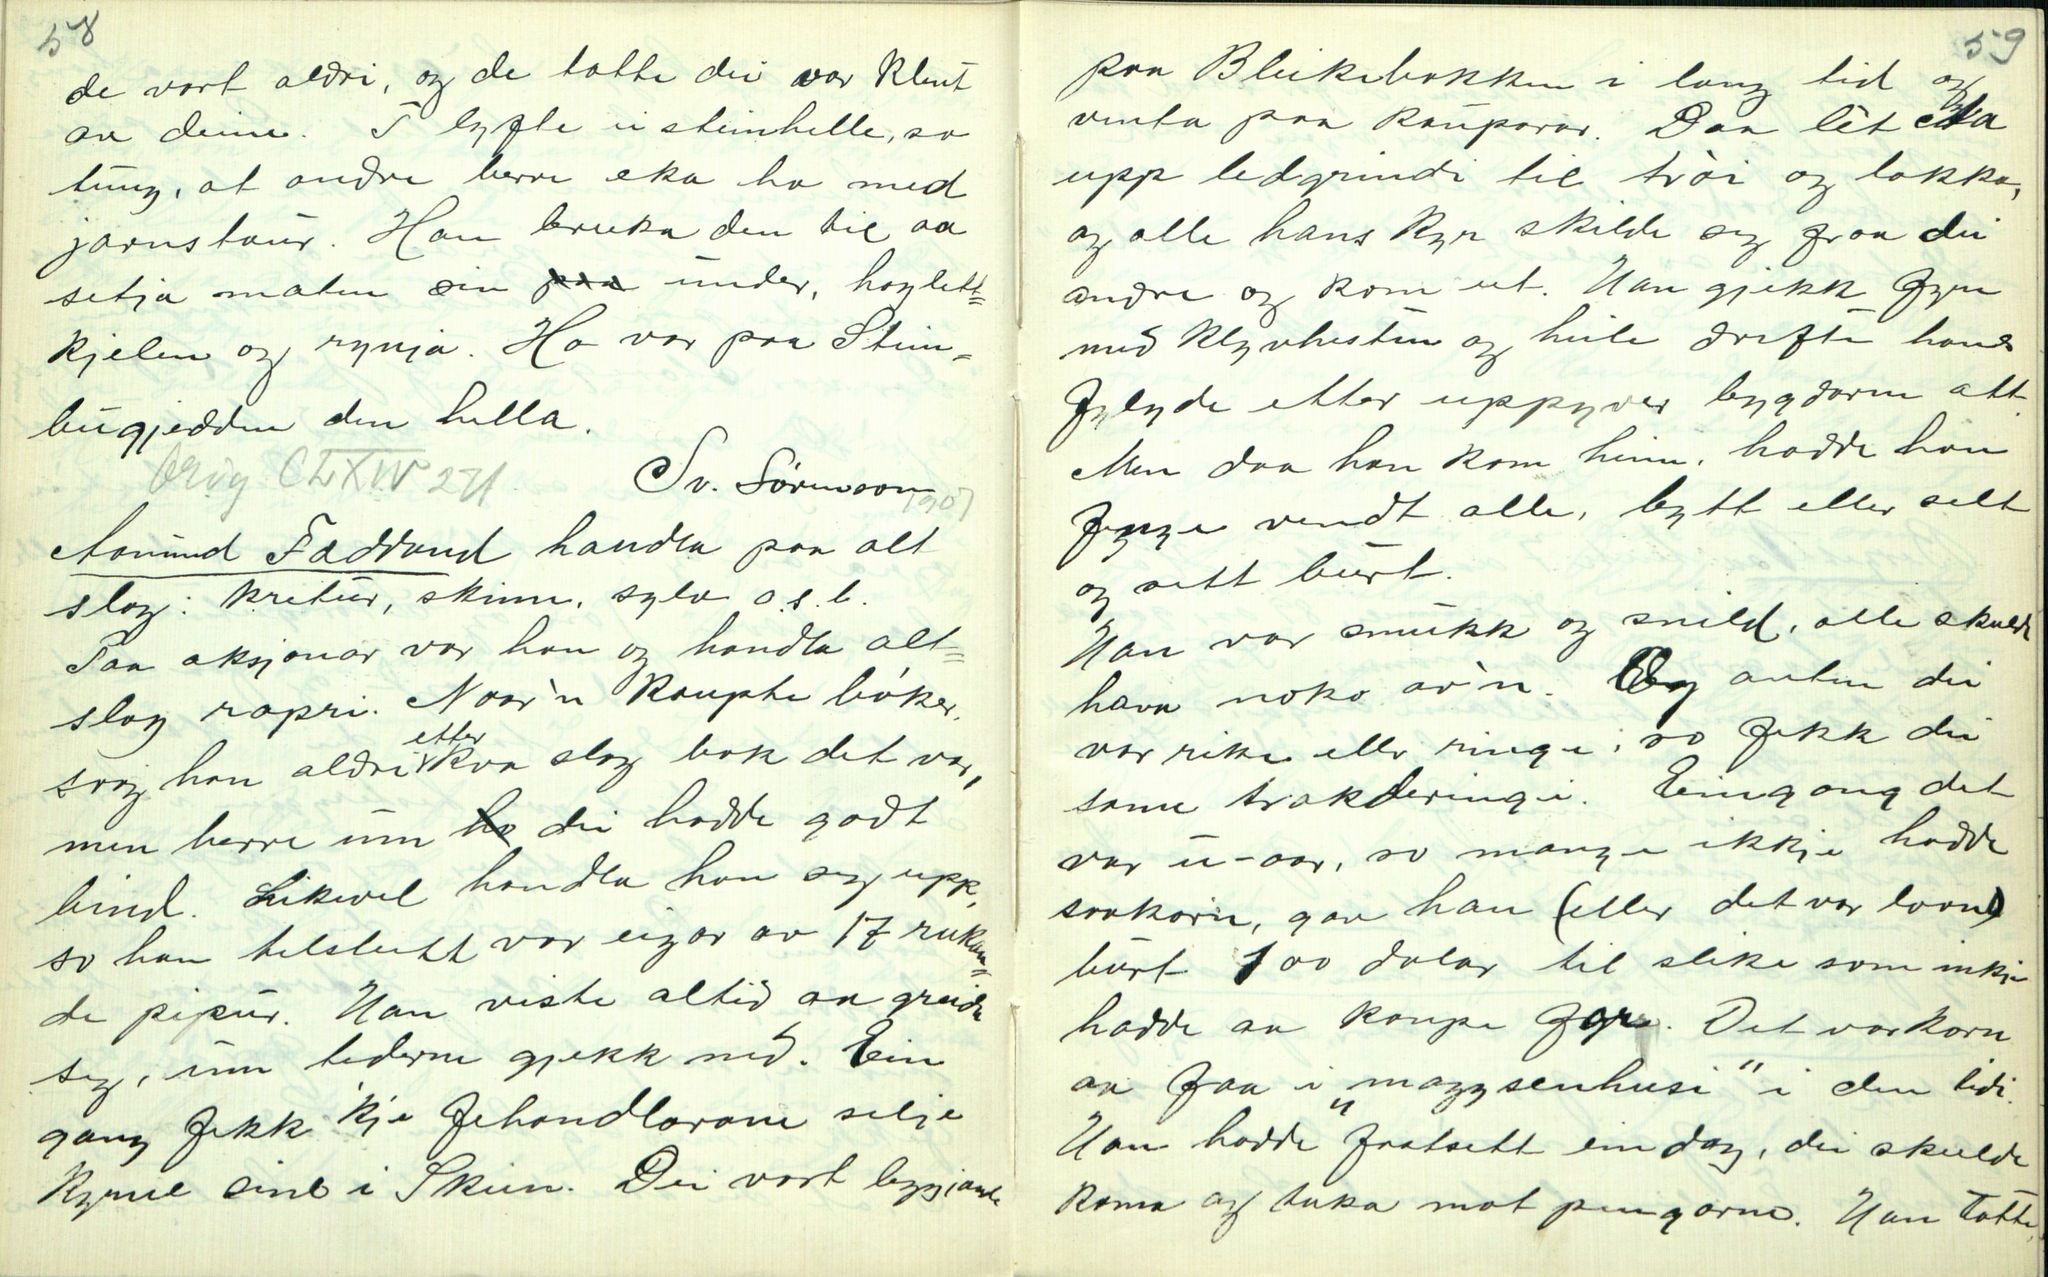 58
de vart aldri, og de totte dei var klent
av deim. T lyfte ei steinhelle, so
tung, at andre berre eka ho med
jarnstaur. Han bruka den til aa
setja maten sin under, høglett=
kjelen og rynja. Ho var paa Stein=
bugjedden den hella.
Sv. Sørenson
Orig CLXIV 271 1907
Aamund Faddvand handla paa alt
slag: kretur, skinn, sylv o.s.b.
Paa aksjonar var han og handla alt=
slag rapri. Naar'n kaupte bøker,
saag han aldri etter kva slag bok det var,
men berre um ho dei hadde godt
bind. Likevel handla han seg upp,
so han telslutt var eigar av 17 rukan=
de pipur. Han viste altid aa greida
seg, um tiderne gjekk ned. Ein
gang fekk 'kje fehandlarane selje
kyrne sine i Skien. Dei vart liggjande
59
paa Bleikebakken i lang tid og
venta paa kauparar. Daa lèt ata
upp ledgrindi til tròi og lokka,
og alle hans kyr skilde seg fraa dei
andre og kom ut. Han gjekk fyre
med klyvhesten og heile drifte hans
fylgde etter uppyver bygdarne att.
Men daa han kom heim, hadde han
fenge vendt alle, bytt eller selt
og sett burt.
Han var smukk og snild, alle skulde
hava noko av'n. Og anten dei
var rike eller ringe, so fekk dei
same trakteringi. Eingong det
var u-aar, so mange ikkje hadde
saakorn, gav han (eller det var laan)
burt 100 dalar til slike som inkje
hadde aa kaupe fyre. Det var korn
aa faa i "maggsenhusi" i den tidi.
Han hadde fastsett ein dag, dei skulde
koma og taka mot pengarne. Han totte,